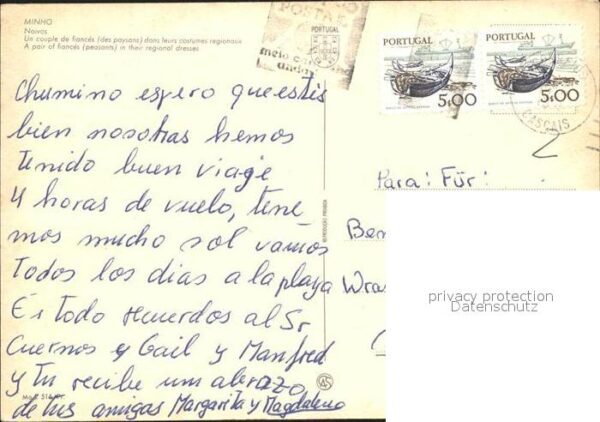 MINHO
Noivos
Un couple de fiancés (des paysans) dans leurs costumes regionaux
A pair of fiancés (peasants) in their regional dresses
POSTAL
PORTUGAL
PORTUGAL
5$00
PORTUGAL
5$00
CASCAIS
chumino espero que estis
bien nosotras hemos
tenido buen viage
4 horas de vuelo, tene
mos mucho sol vamos
todos los dias a la playa
Es todo recuerdos al Sr
Cuernos y Gail y Manfred
y tu recibe un abrazo
de tus amigas Margarita y Magdalena
REPRODUÇÃO PROIBIDA
Para: Für:
Ber
Wras
privacy protection
Datenschutz